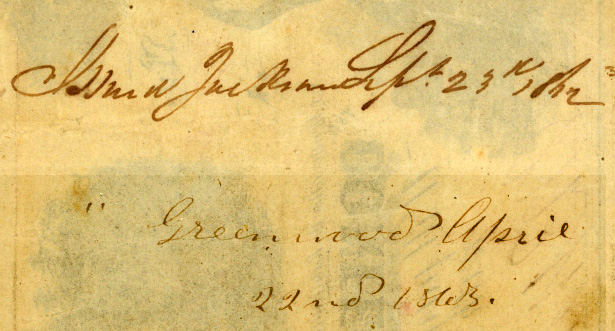 Issued Jackson Sept. 23rd, 1862
" Greenwood April
22nd 1863.